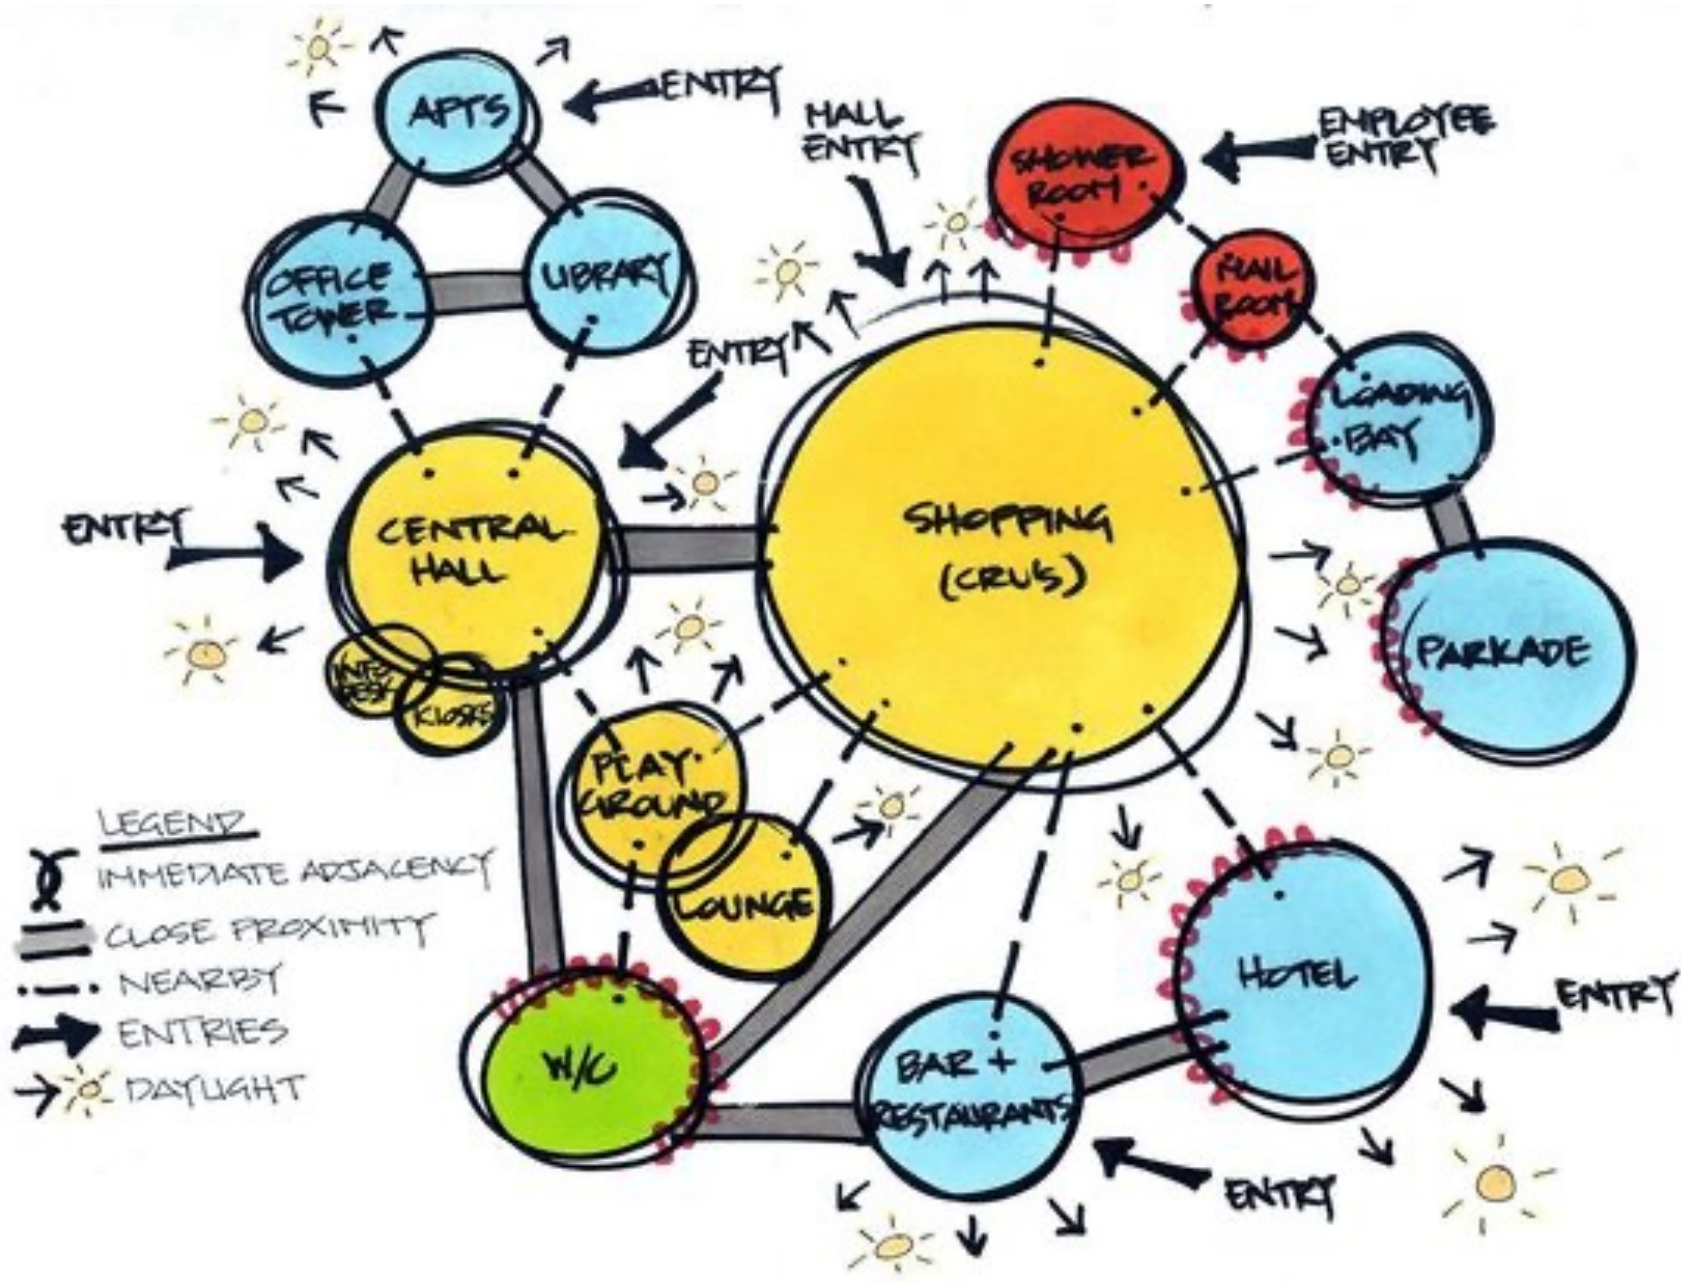 APTS
ENTRY
MALL
ENTRY
SHOWER
ROOM
EMPLOYEE
ENTRY
OFFICE
TOWER
LIBRARY
MAIL
ROOM
ENTRY
LOADING
BAY
ENTRY
CENTRAL
HALL
SHOPPING
(CRU'S)
PARKADE
INFO
DESK
KIOSKS
PLAY-
GROUND
LOUNGE
LEGEND
IMMEDIATE ADJACENCY
CLOSE PROXIMITY
NEARBY
ENTRIES
DAYLIGHT
W/C
BAR +
RESTAURANTS
HOTEL
ENTRY
ENTRY